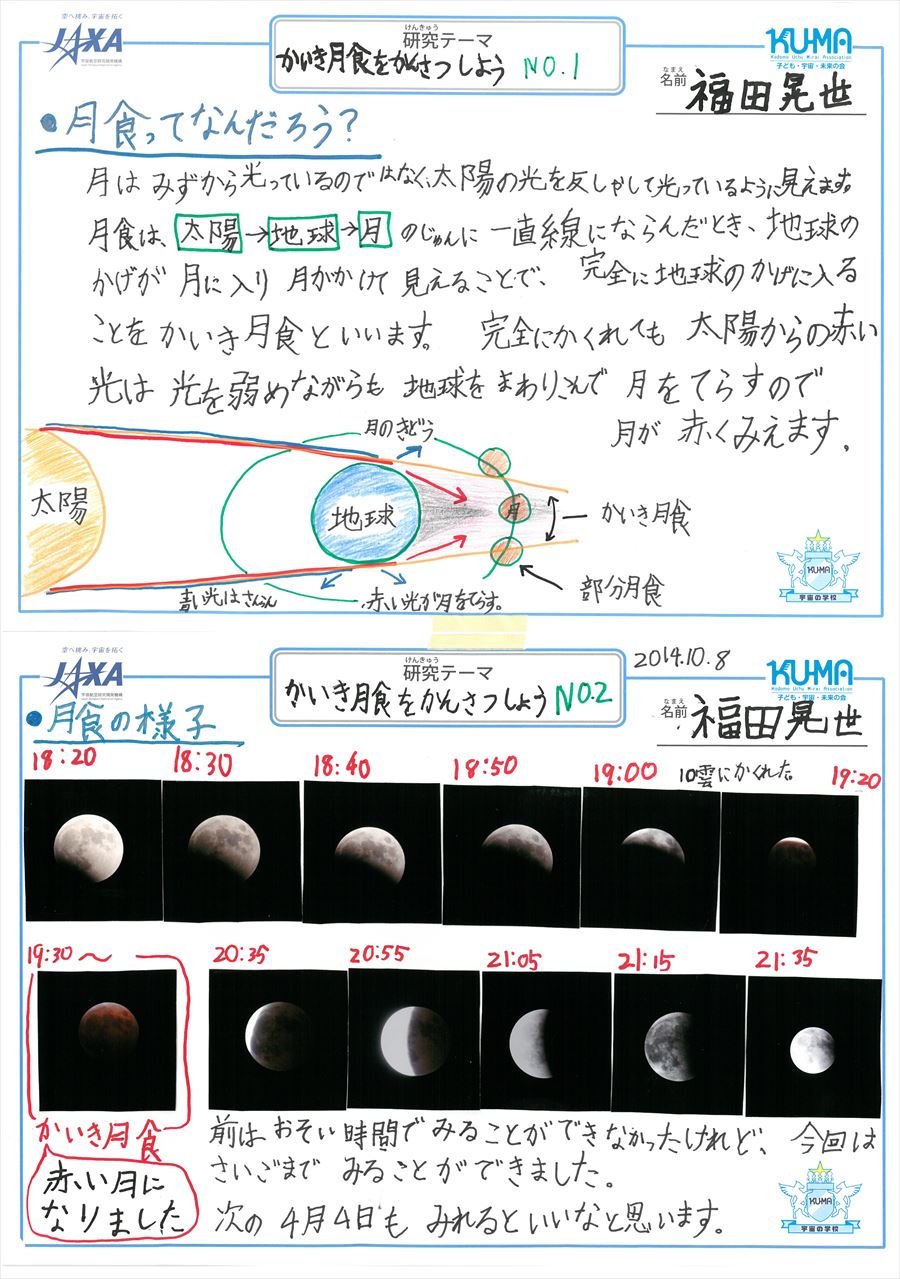 空へ挑み、宇宙を拓く
JAXA
宇宙航空研究開発機構
けんきゅう
研究テーマ
かいき月食をかんさつしよう NO.1
KUMA
Kodomo Uchu Mirai Association
子ども・宇宙・未来の会
なまえ
名前 福田晃世
●月食ってなんだろう?
月は みずから光っているのではなく、太陽の光を反しゃして光っているように見えます。
月食は、太陽→地球→月 のじゅんに 一直線にならんだとき、地球の
かげが 月に入り 月がかけて 見えることで、完全に地球のかげに入る
ことを かいき月食といいます。 完全にかくれても 太陽からの赤い
光は 光を弱めながらも 地球をまわりこんで 月をてらすので
月が 赤くみえます。
月のきどう
太陽
地球
月
かいき月食
部分月食
青い光はさんらん
赤い光が月をてらす。
KUMA
宇宙の学校
空へ挑み、宇宙を拓く
JAXA
宇宙航空研究開発機構
けんきゅう
研究テーマ
かいき月食をかんさつしよう NO.2
2014.10.8
KUMA
Kodomo Uchu Mirai Association
子ども・宇宙・未来の会
なまえ
名前 福田晃世
●月食の様子
18:20 18:30 18:40 18:50 19:00 雲にかくれた 19:20
19:30〜 20:35 20:55 21:05 21:15 21:35
かいき月食
赤い月に
なりました
前は おそい時間で みることができなかったけれど、 今回は
さいごまで みることができました。
次の 4月4日も みれるといいなと思います。
KUMA
宇宙の学校